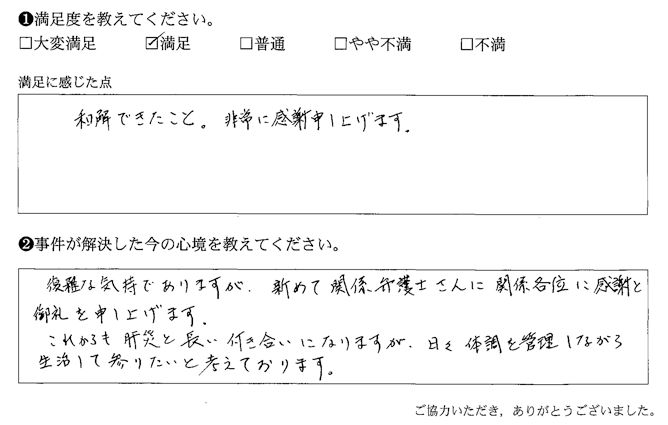 ❶満足度を教えてください。
□大変満足 ☑満足 □普通 □やや不満 □不満
満足に感じた点
和解できたこと。非常に感謝申し上げます。
❷事件が解決した今の心境を教えてください。
複雑な気持でありますが、新めて関係弁護士さんに関係各位に感謝と
御礼を申し上げます。
これからも肝炎と長い付き合いになりますが、日々体調を管理しながら
生活して参りたいと考えております。
ご協力いただき，ありがとうございました。